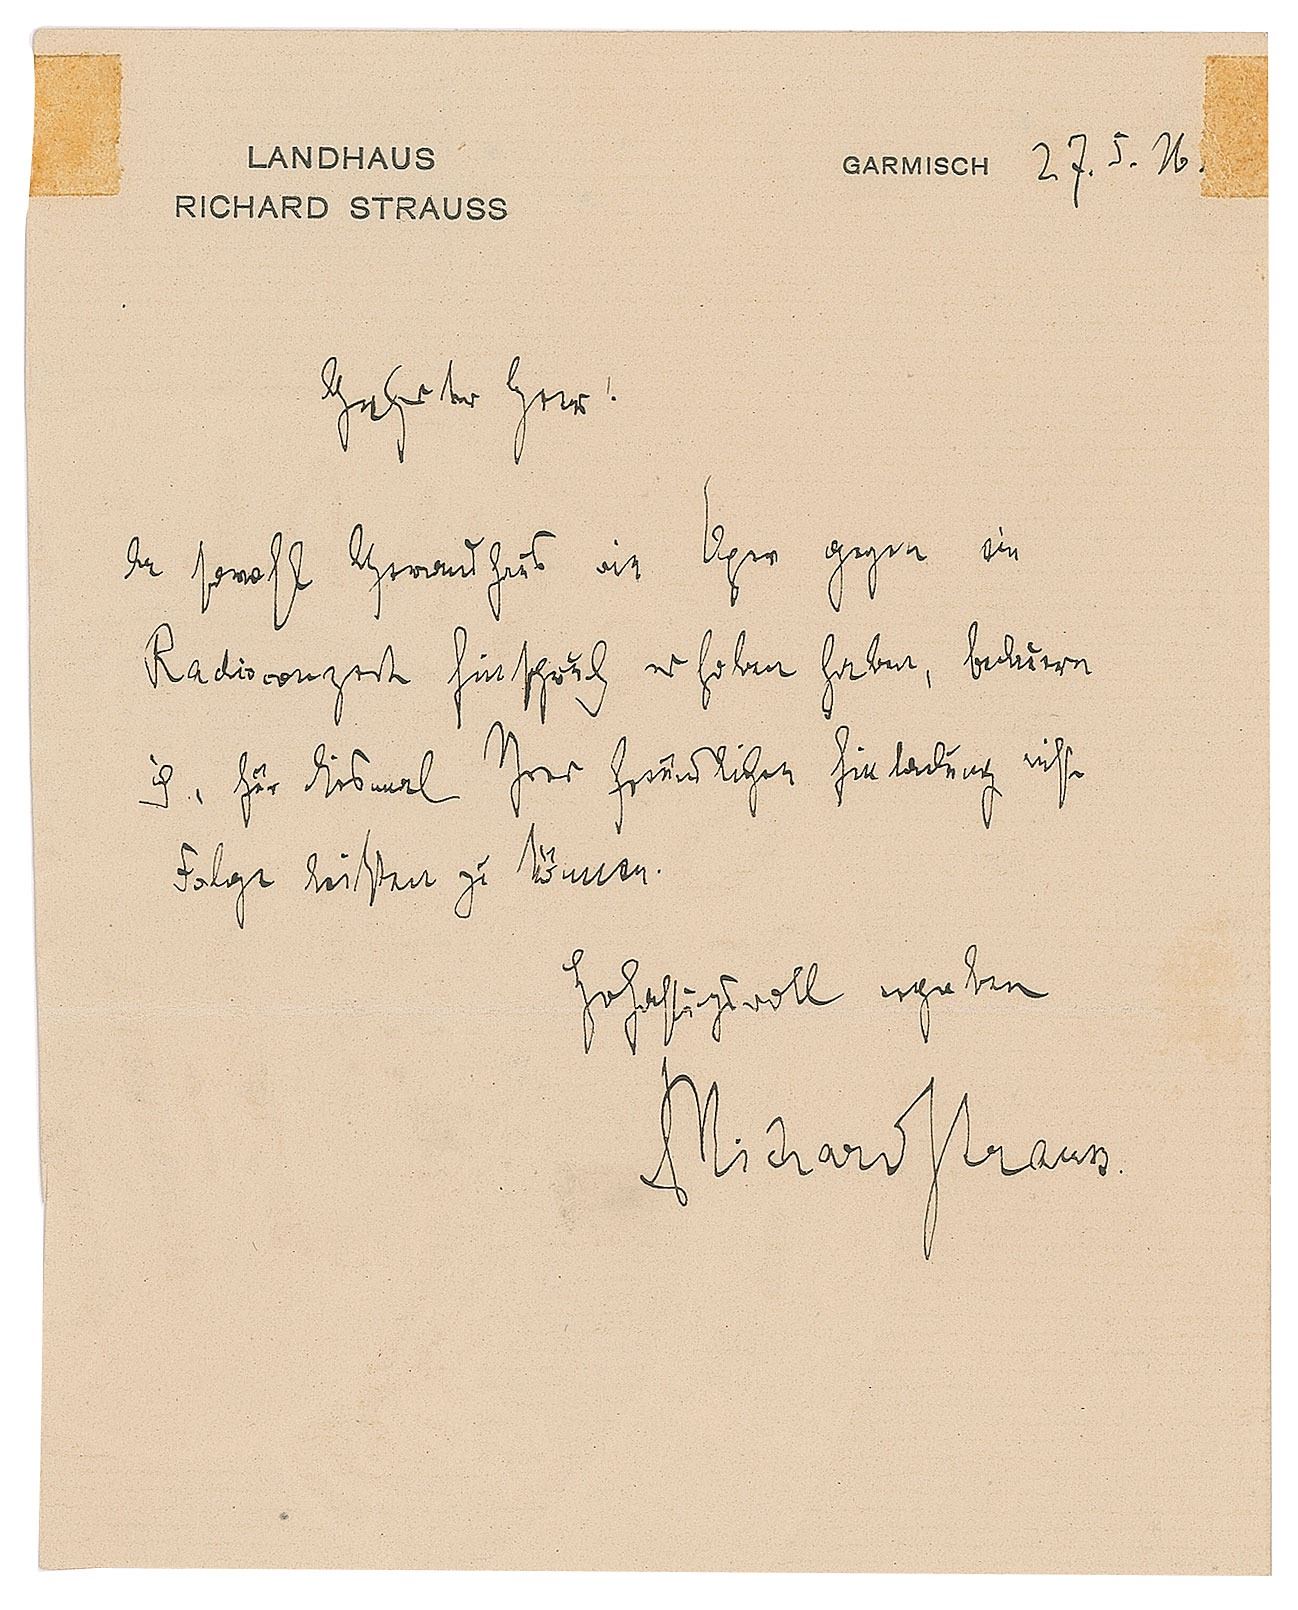 LANDHAUS
RICHARD STRAUSS
GARMISCH 27. 5. 26.
Geehrter Herr!
da sowohl Gewandhaus wie Oper gegen ein
Radioconzert Einspruch erhoben haben, bedauern
ich, für diesmal Ihrer freundlichen Einladung nicht
Folge leisten zu können.
Hochachtungsvoll ergeben
Richard Strauss.